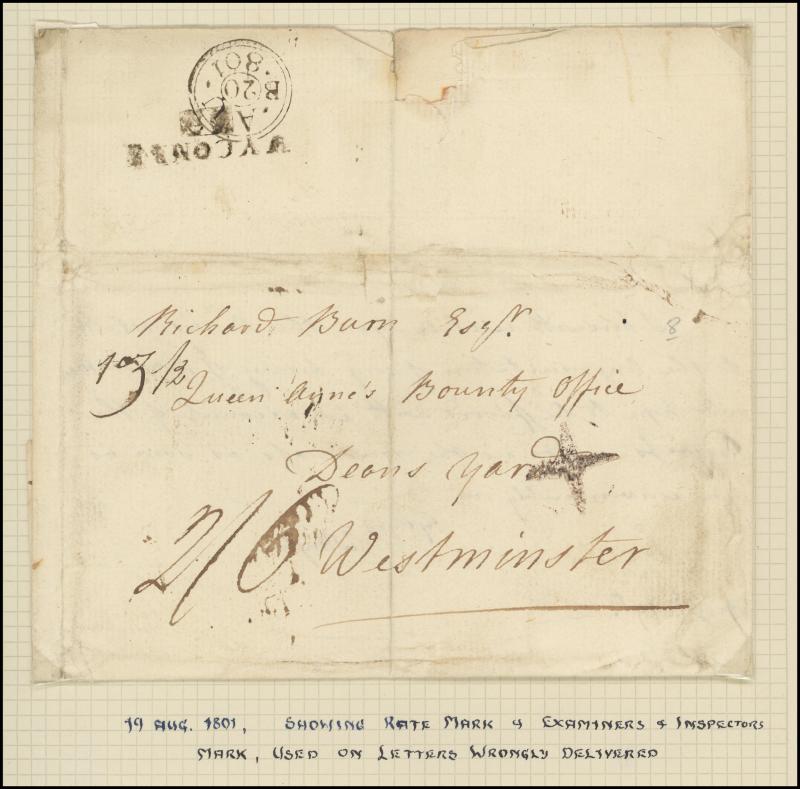 801
B 20
AU
WYCOMBE
Richard Burn Esqr.
8
Queen Anne's Bounty Office
Deans Yard
2/6 Westminster
19 AUG. 1801, SHOWING RATE MARK & EXAMINERS & INSPECTORS
MARK, USED ON LETTERS WRONGLY DELIVERED